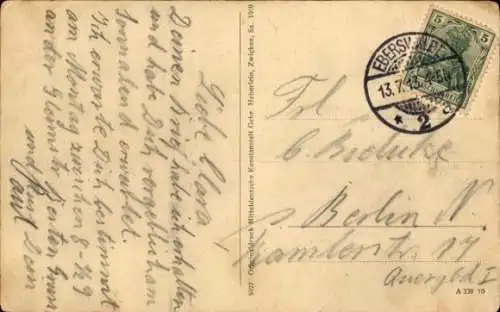 Liebe Clara!
Deinen Brief habe ich erhalten
und habe Dich vergeblich am
Sonnabend erwartet.
Ich erwarte Dich bestimmt
am Montag zwischen 8-½9
an der
Besten Gruß
und Kuß Dein
6027 Offsetdruck Mitteldeutsche Kunstanstalt Gebr. Heinerlein, Zwickau, Sa. 1909
5 5
EBERSWALDE
13.7.13
* 2
Frl
C.
Berlin N.
17
Quergbd I
A 338 10